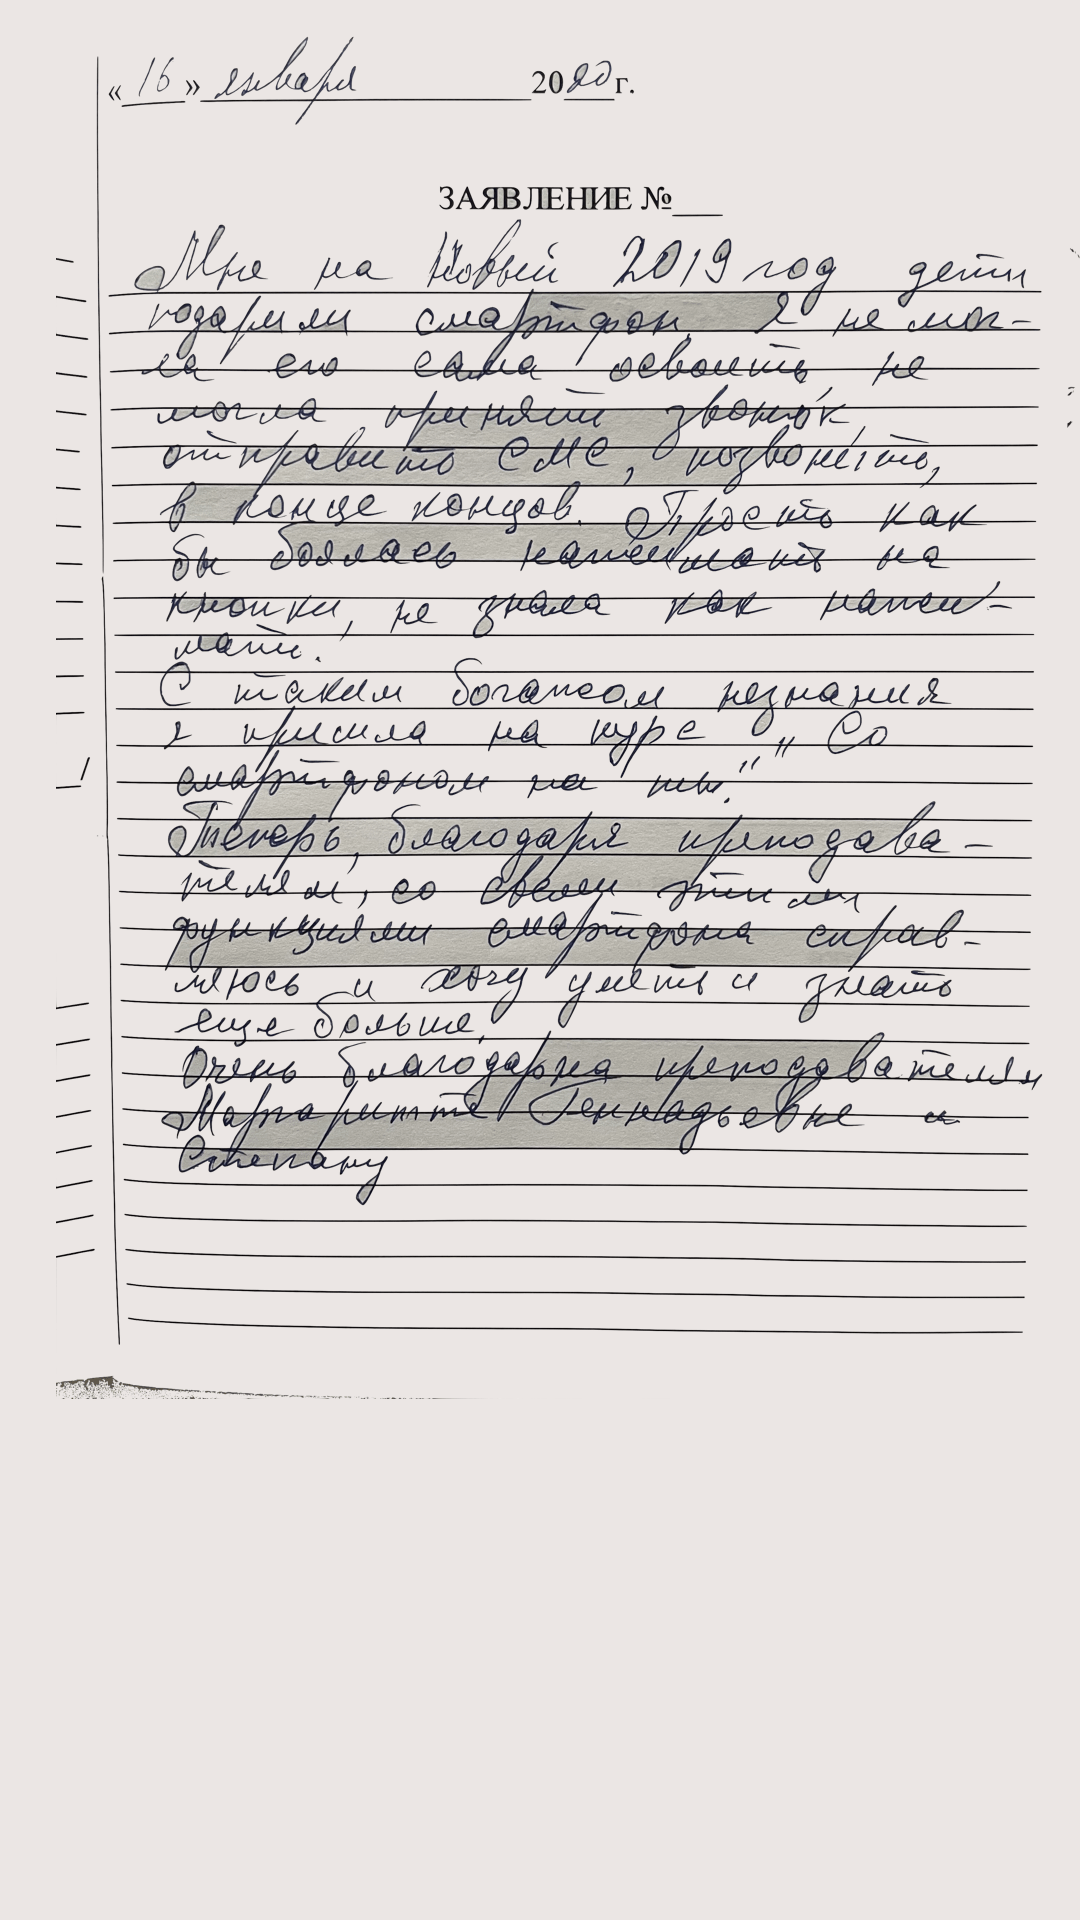 «16» января 2020г.
ЗАЯВЛЕНИЕ №___
Мне на Новый 2019 год дети
подарили смартфон. Я не мог-
ла его сама освоить, не
могла принять звонок,
отправить СМС, позвонить,
в конце концов. Просто как
бы боялась нажимать на
кнопки, не знала как нажи-
мать.
С таким богажом незнания
я пришла на курс „Со
смартфоном на ты."
Теперь, благодаря преподава-
телям, со всеми этими
функциями смартфона справ-
ляюсь и хочу уметь и знать
еще больше.
Очень благодарна преподавателям
Маргаритте Геннадьевне и
Степану